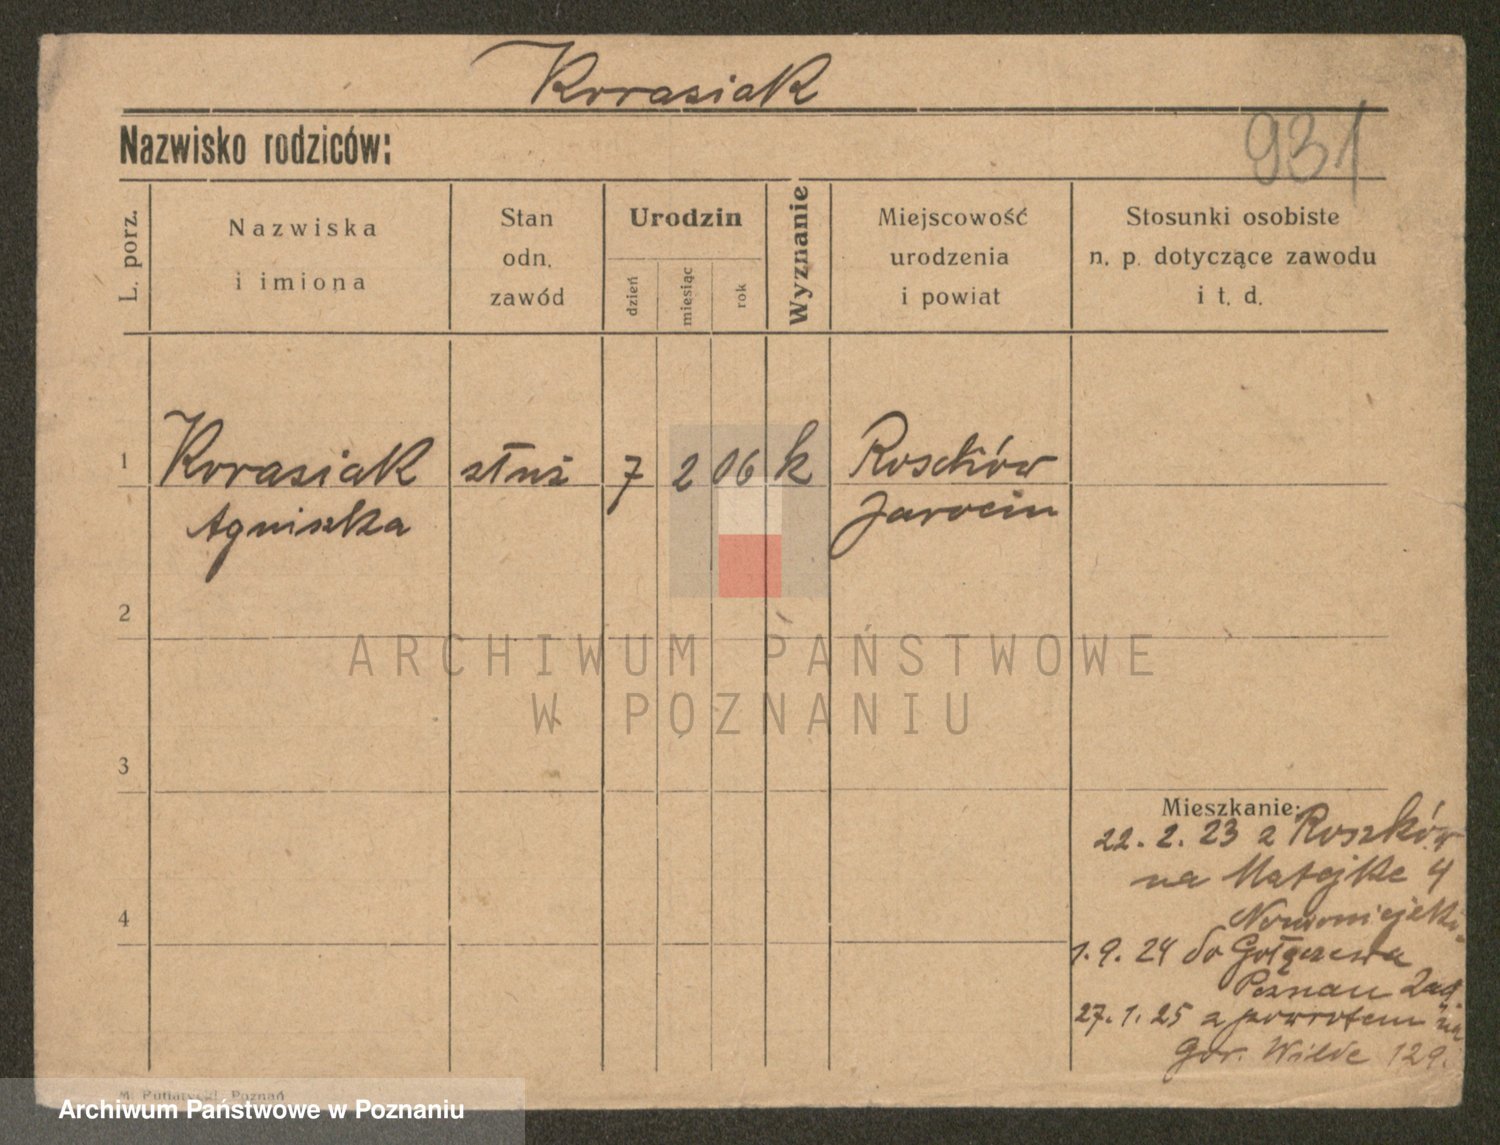 Korasiak
Nazwisko rodziców:
931
L. porz.
Nazwiska
i imiona
Stan
odn.
zawód
Urodzin
dzień
miesiąc
rok
Wyznanie
Miejscowość
urodzenia
i powiat
Stosunki osobiste
n. p. dotyczące zawodu
i t. d.
1
Korasiak
służ
7
2
06
k
Roszków
Agniszka
Jarocin
2
ARCHIWUM PAŃSTWOWE
W POZNANIU
3
Mieszkanie:
22. 2. 23 z Roszków
na Matejke 4
4
1. 9. 24 do
Poznań
27. 1. 25 z powrotem na
Gor. Wilde 129.
M. Putiatycki, Poznań
Archiwum Państwowe w Poznaniu